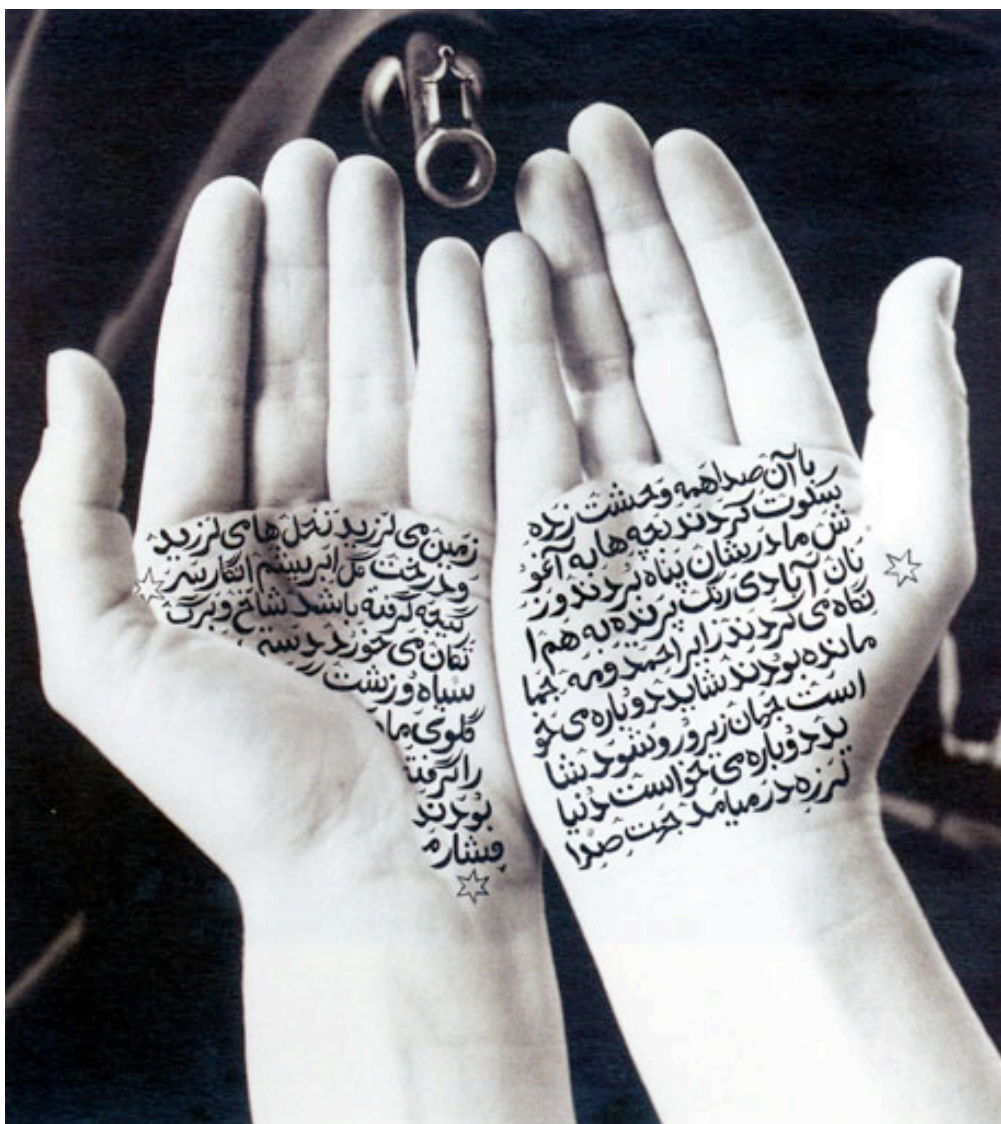 با آن صدا همه وحشت زده
سکوت کردند بچه ها به آغو
ش مادرشان پناه بردند و ر
آبادی رنگ پرنده به هم ا
نگاه می کردند زایر احمد و مه جما
مانده بودند شاید دوباره می خو
است جهان زیر و رو شود شا
ید دوباره می خواست دنیا
لرزه در میامد صدا
زمین می لرزید نخل ها می لرزید
و درخت گل ابریشم انگار سر
گیجه گرفته باشد شاخ و برگ
تکان می خورد
سیاه و زشت
گلوی
را گرفته
بودند
فشار م